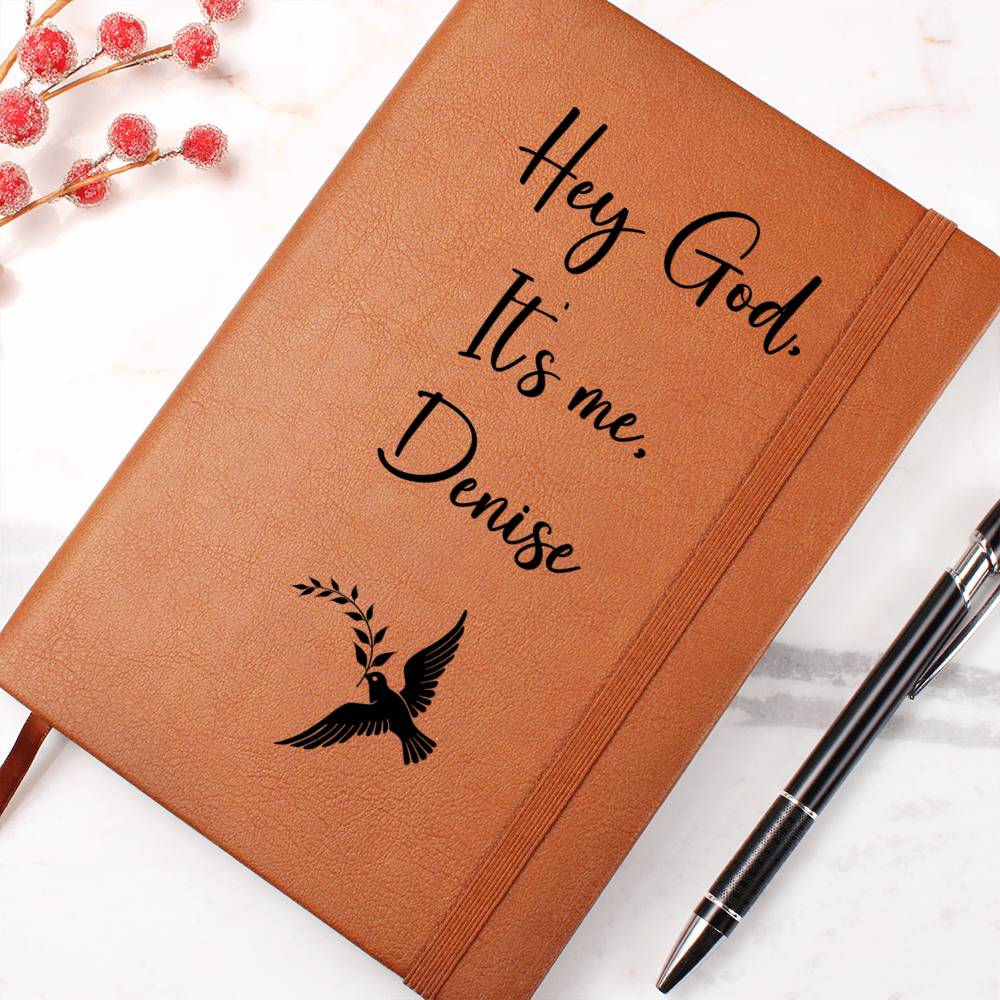 Hey God,
It's me,
Denise